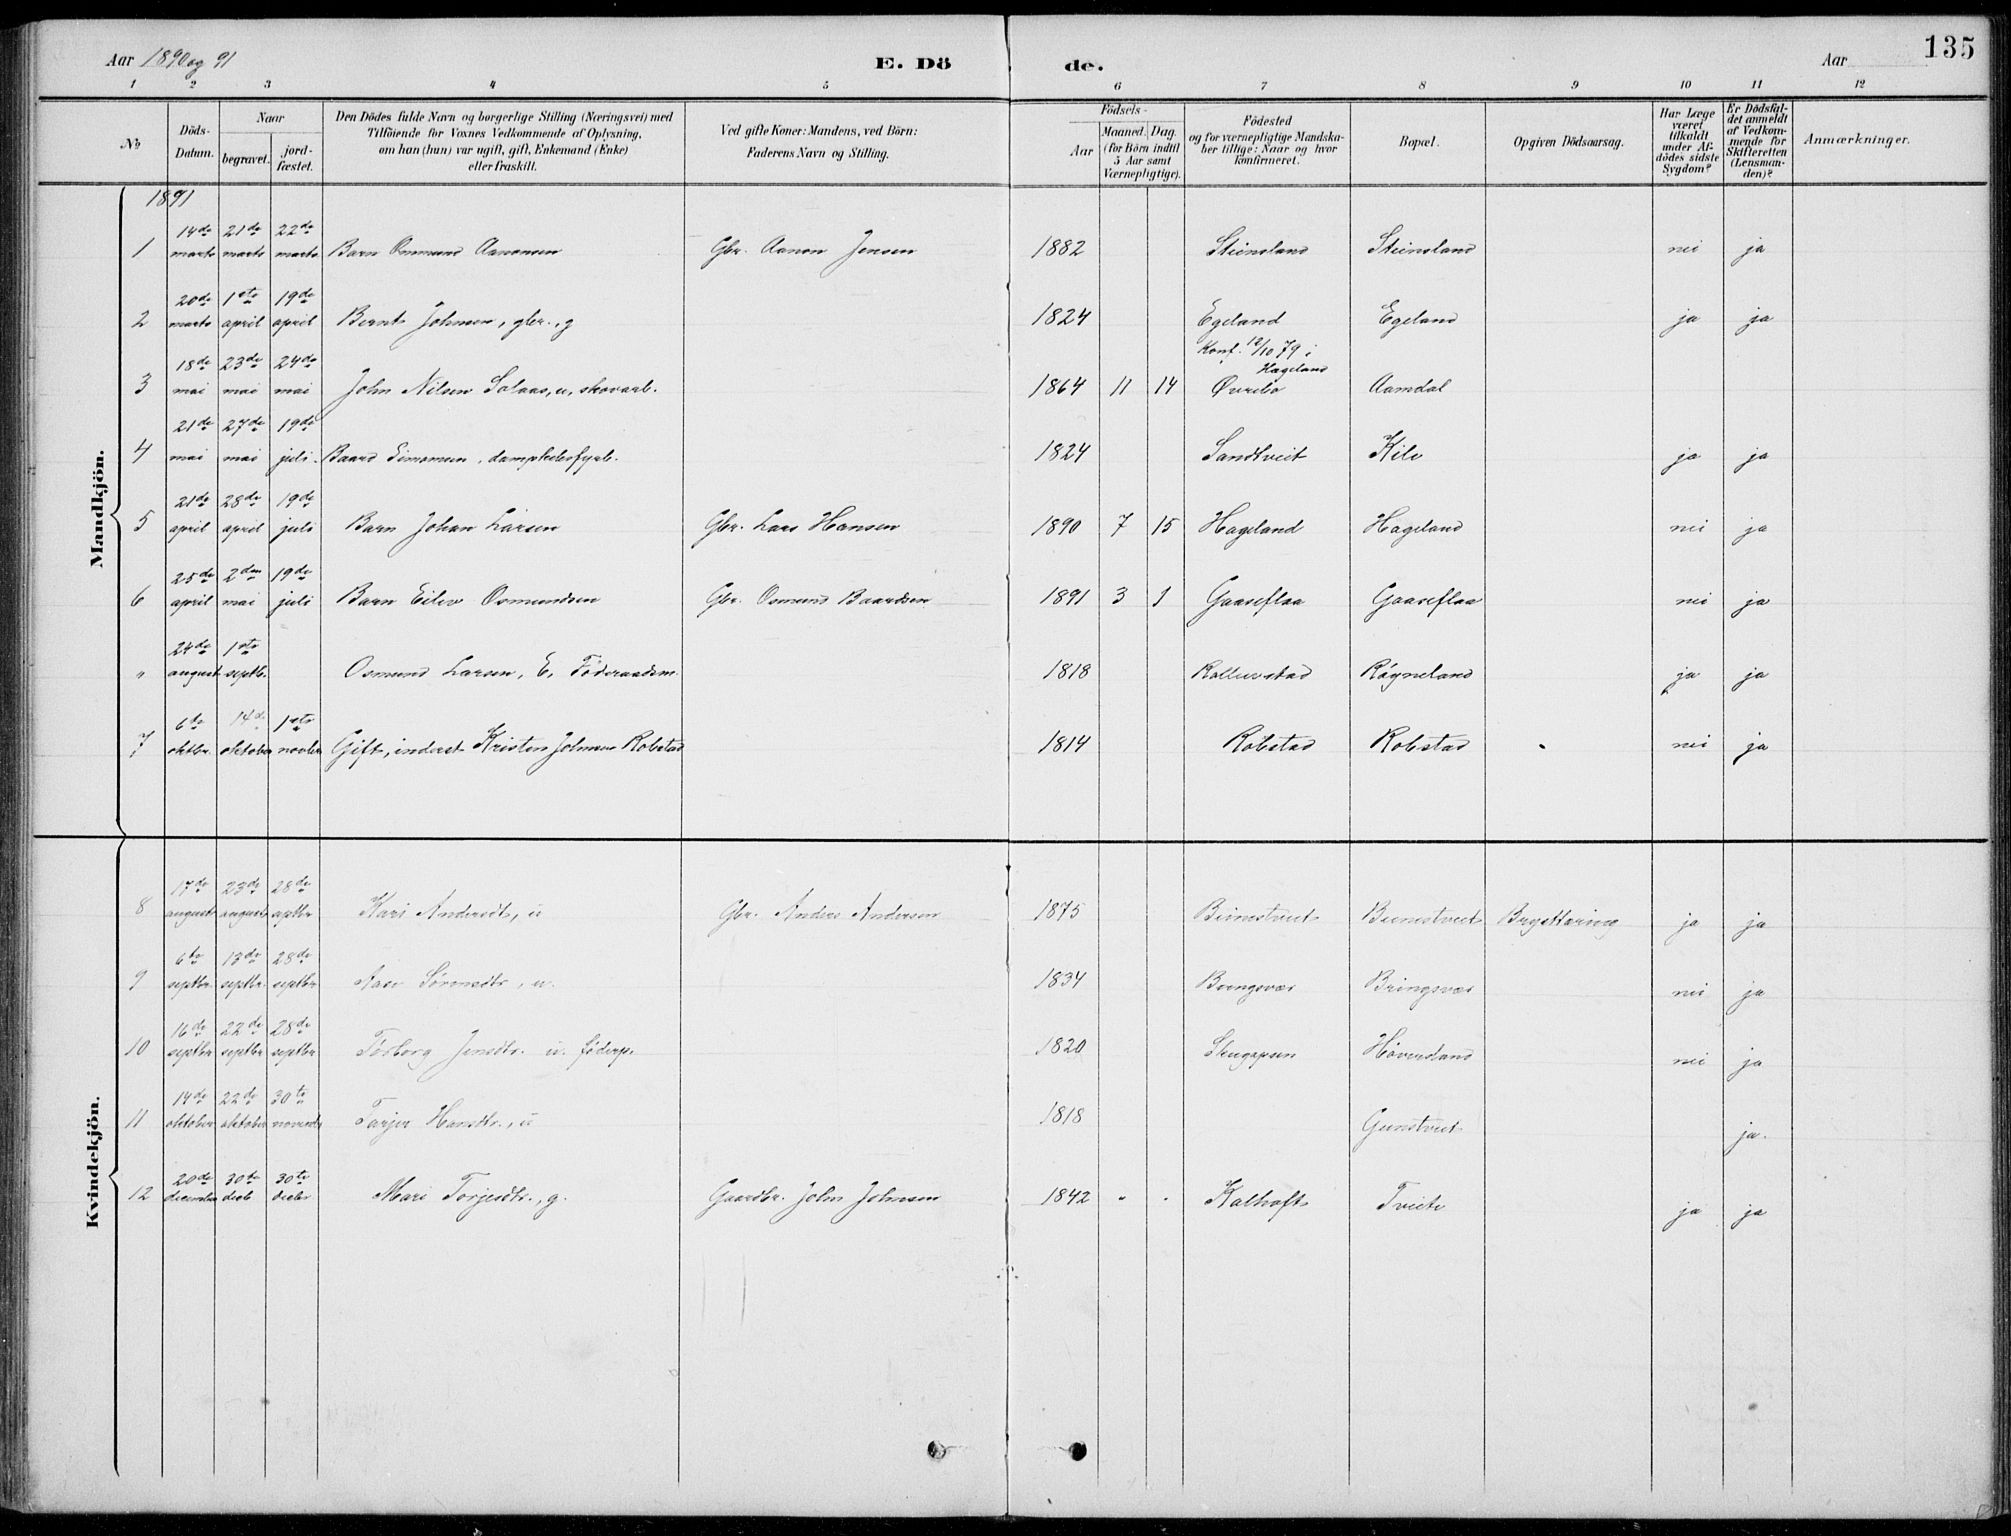 Aar 1890 og 91
E. Dö
de.
Aar
135
1 2 3 4 5 6 7 8 9 10 11 12
№
Döds-Datum.
Naar
begravet.
jordfæstet.
Den Dödes fulde Navn og borgerlige Stilling (Næringsvei) med
Tilföiende for Voxnes Vedkommende af Oplysning,
om han (hun) var ugift, gift, Enkemand (Enke)
eller fraskilt.
Ved gifte Koner: Mandens, ved Börn:
Faderens Navn og Stilling.
Födsels-
Aar
Maaned. Dag.
(for Börn indtil
5 Aar samt
Værnepligtige).
Födested
og for værnepligtige Mandskaber tillige: Naar og hvor
konfirmeret.
Bopæl.
Opgiven Dödsaarsag.
Har Læge
været
tilkaldt
under Afdödes sidste
Sygdom?
Er Dödsfaldet anmeldt
af Vedkommende for
Skifteretten
(Lensmanden)?
Anmærkninger.
Mandkjön.
1891
1 14de marts 21de marts 22de marts Barn Osmund Aanonsen Gbr. Aanon Jensen 1882 Steinsland Steinsland nei ja
2 20de marts 1ste april 19de april Bernt Johnsen, gbr., g 1824 Egeland Egeland ja ja
3 18de mai 23de mai 24de mai John Nilsen Solaas, u, skovarb. 1864 11 14 Konf. 12/10 79 i Hægeland Øvrebø Aamdal
4 21de mai 27de mai 19de juli Baard Simonsen, 1824 Sandtveit Kile ja ja
5 21de april 28de april 19de juli Barn Johan Larsen Gbr. Lars Hansen 1890 7 15 Hageland Hageland nei ja
6 25de april 2den mai 19de juli Barn Eilev Osmundsen Gbr. Osmund Baardsen 1891 3 1 Gaaseflaa Gaaseflaa nei ja
" 24de august 1ste septbr. Osmund Larsen, E, Föderaadsm. 1818 Røyneland ja ja
7 6te oktbr. 14de oktober 1ste novber Gift, inderst Kristen Johnsen Robstad 1814 Robstad Robstad nei ja
Kvindekjön.
8 17de august 23de august 28de Kari Andersdt., u Gbr. Anders Andersen 1875 ja ja
9 6te septbr. 13de septbr. 28de septbr Aase Sørensdtr, u. 1834 Bringsvær Bringsvær nei ja
10 16de septbr 22de septbr 28de septbr. Torborg Jensdtr. u. föderp. 1820 Høversland nei ja
11 14de oktober 22de oktober 30te Tarjer Hansdtr., u 1818 Gunstveit ja.
12 20de december 30te decb 30te decbr Mari Torjusdtr., g. Gaardbr. John Johnsen 1842 " " Kalhoft Tveite ja ja